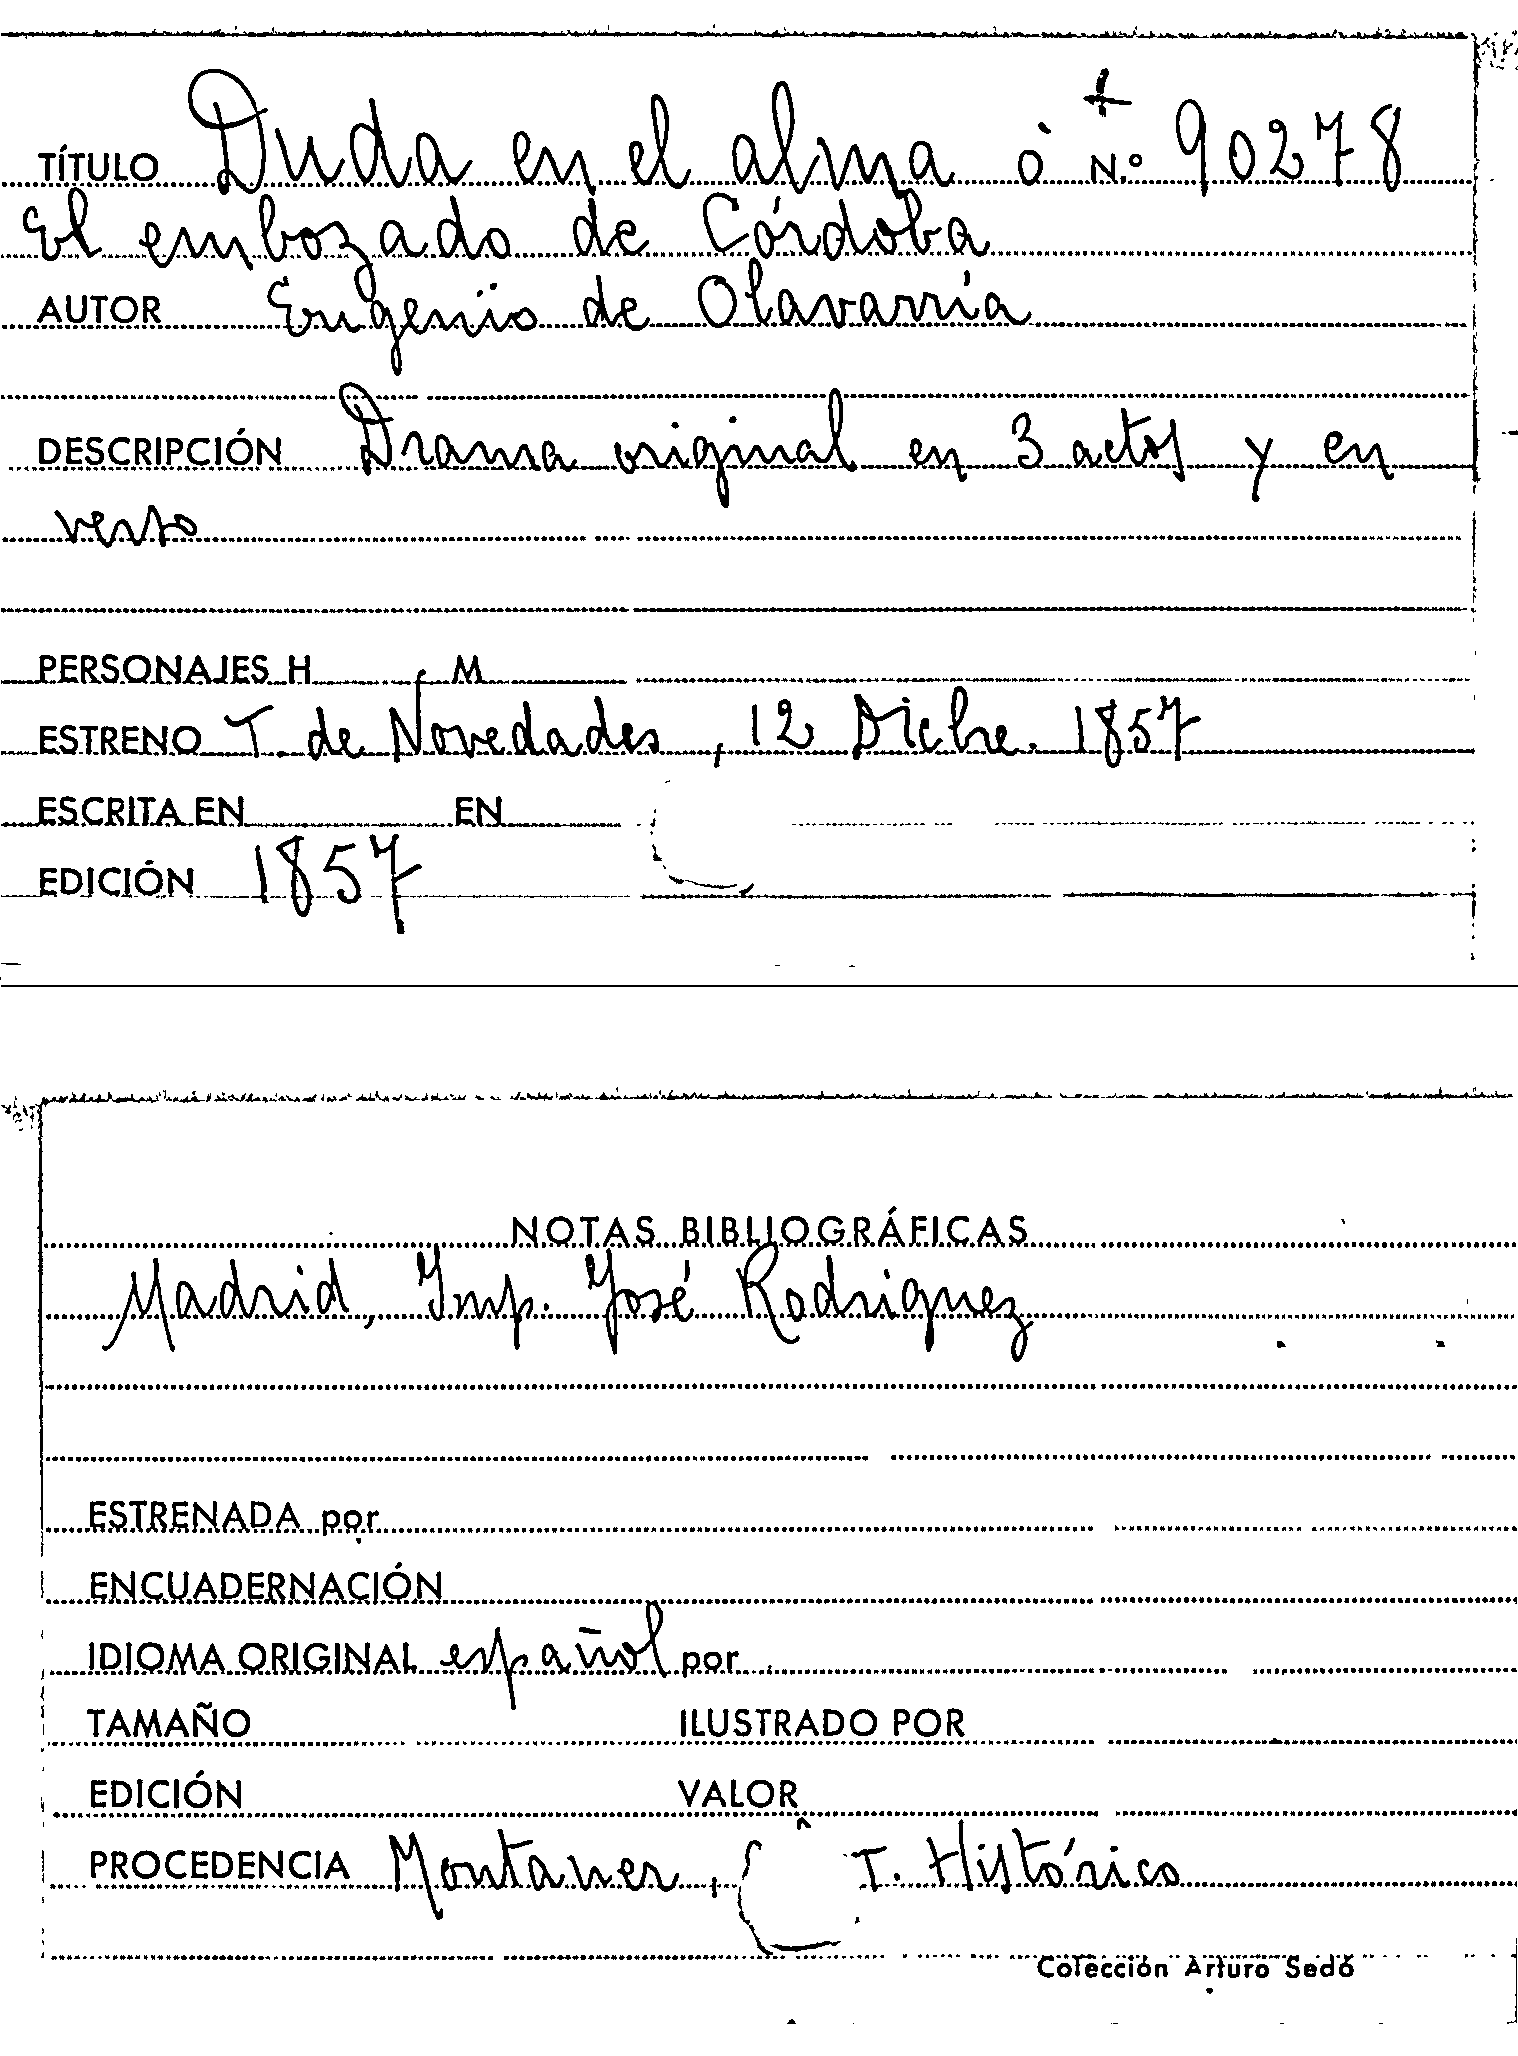 TÍTULO Duda en el alma ó N.º 90278
El embozado de Córdoba
AUTOR Eugenio de Olavarría
DESCRIPCIÓN Drama original en 3 actos y en
verso
PERSONAJES H M
ESTRENO T. de Novedades, 12 Dicbre. 1857
ESCRITA EN EN
EDICIÓN 1857
NOTAS BIBLIOGRÁFICAS
Madrid, Imp. José Rodriguez
ESTRENADA por
ENCUADERNACIÓN
IDIOMA ORIGINAL español por
TAMAÑO ILUSTRADO POR
EDICIÓN VALOR
PROCEDENCIA Montaner, T. Histórico
Colección Arturo Sedó